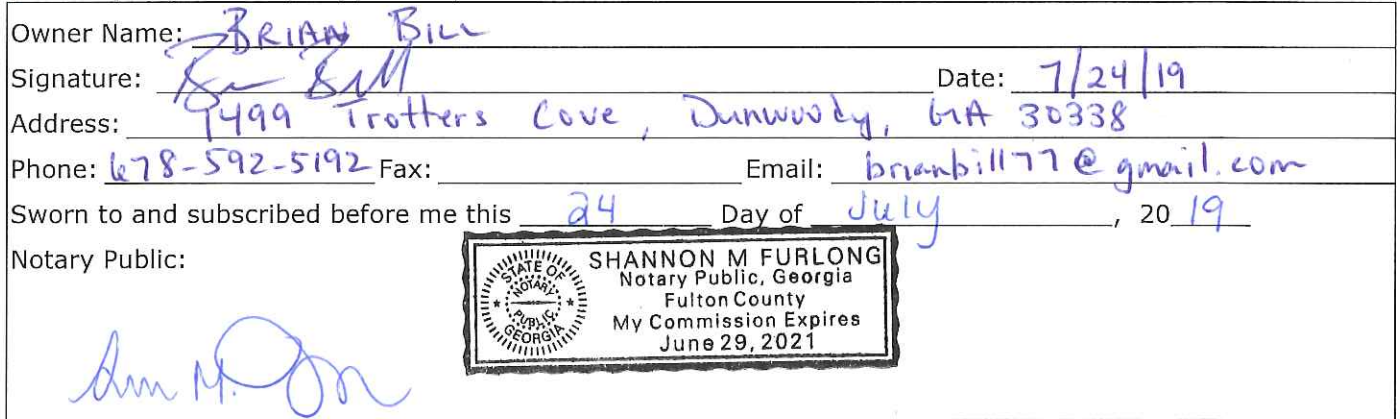 Owner Name: BRIAN BILL
Signature: Date: 7/24/19
Address: 1499 Trotters Cove, Dunwoody, GA 30338
Phone: 678-592-5192 Fax: Email: brianbill77@gmail.com
Sworn to and subscribed before me this 24 Day of July, 20 19
Notary Public:
STATE OF GEORGIA
NOTARY PUBLIC
SHANNON M FURLONG
Notary Public, Georgia
Fulton County
My Commission Expires
June 29, 2021